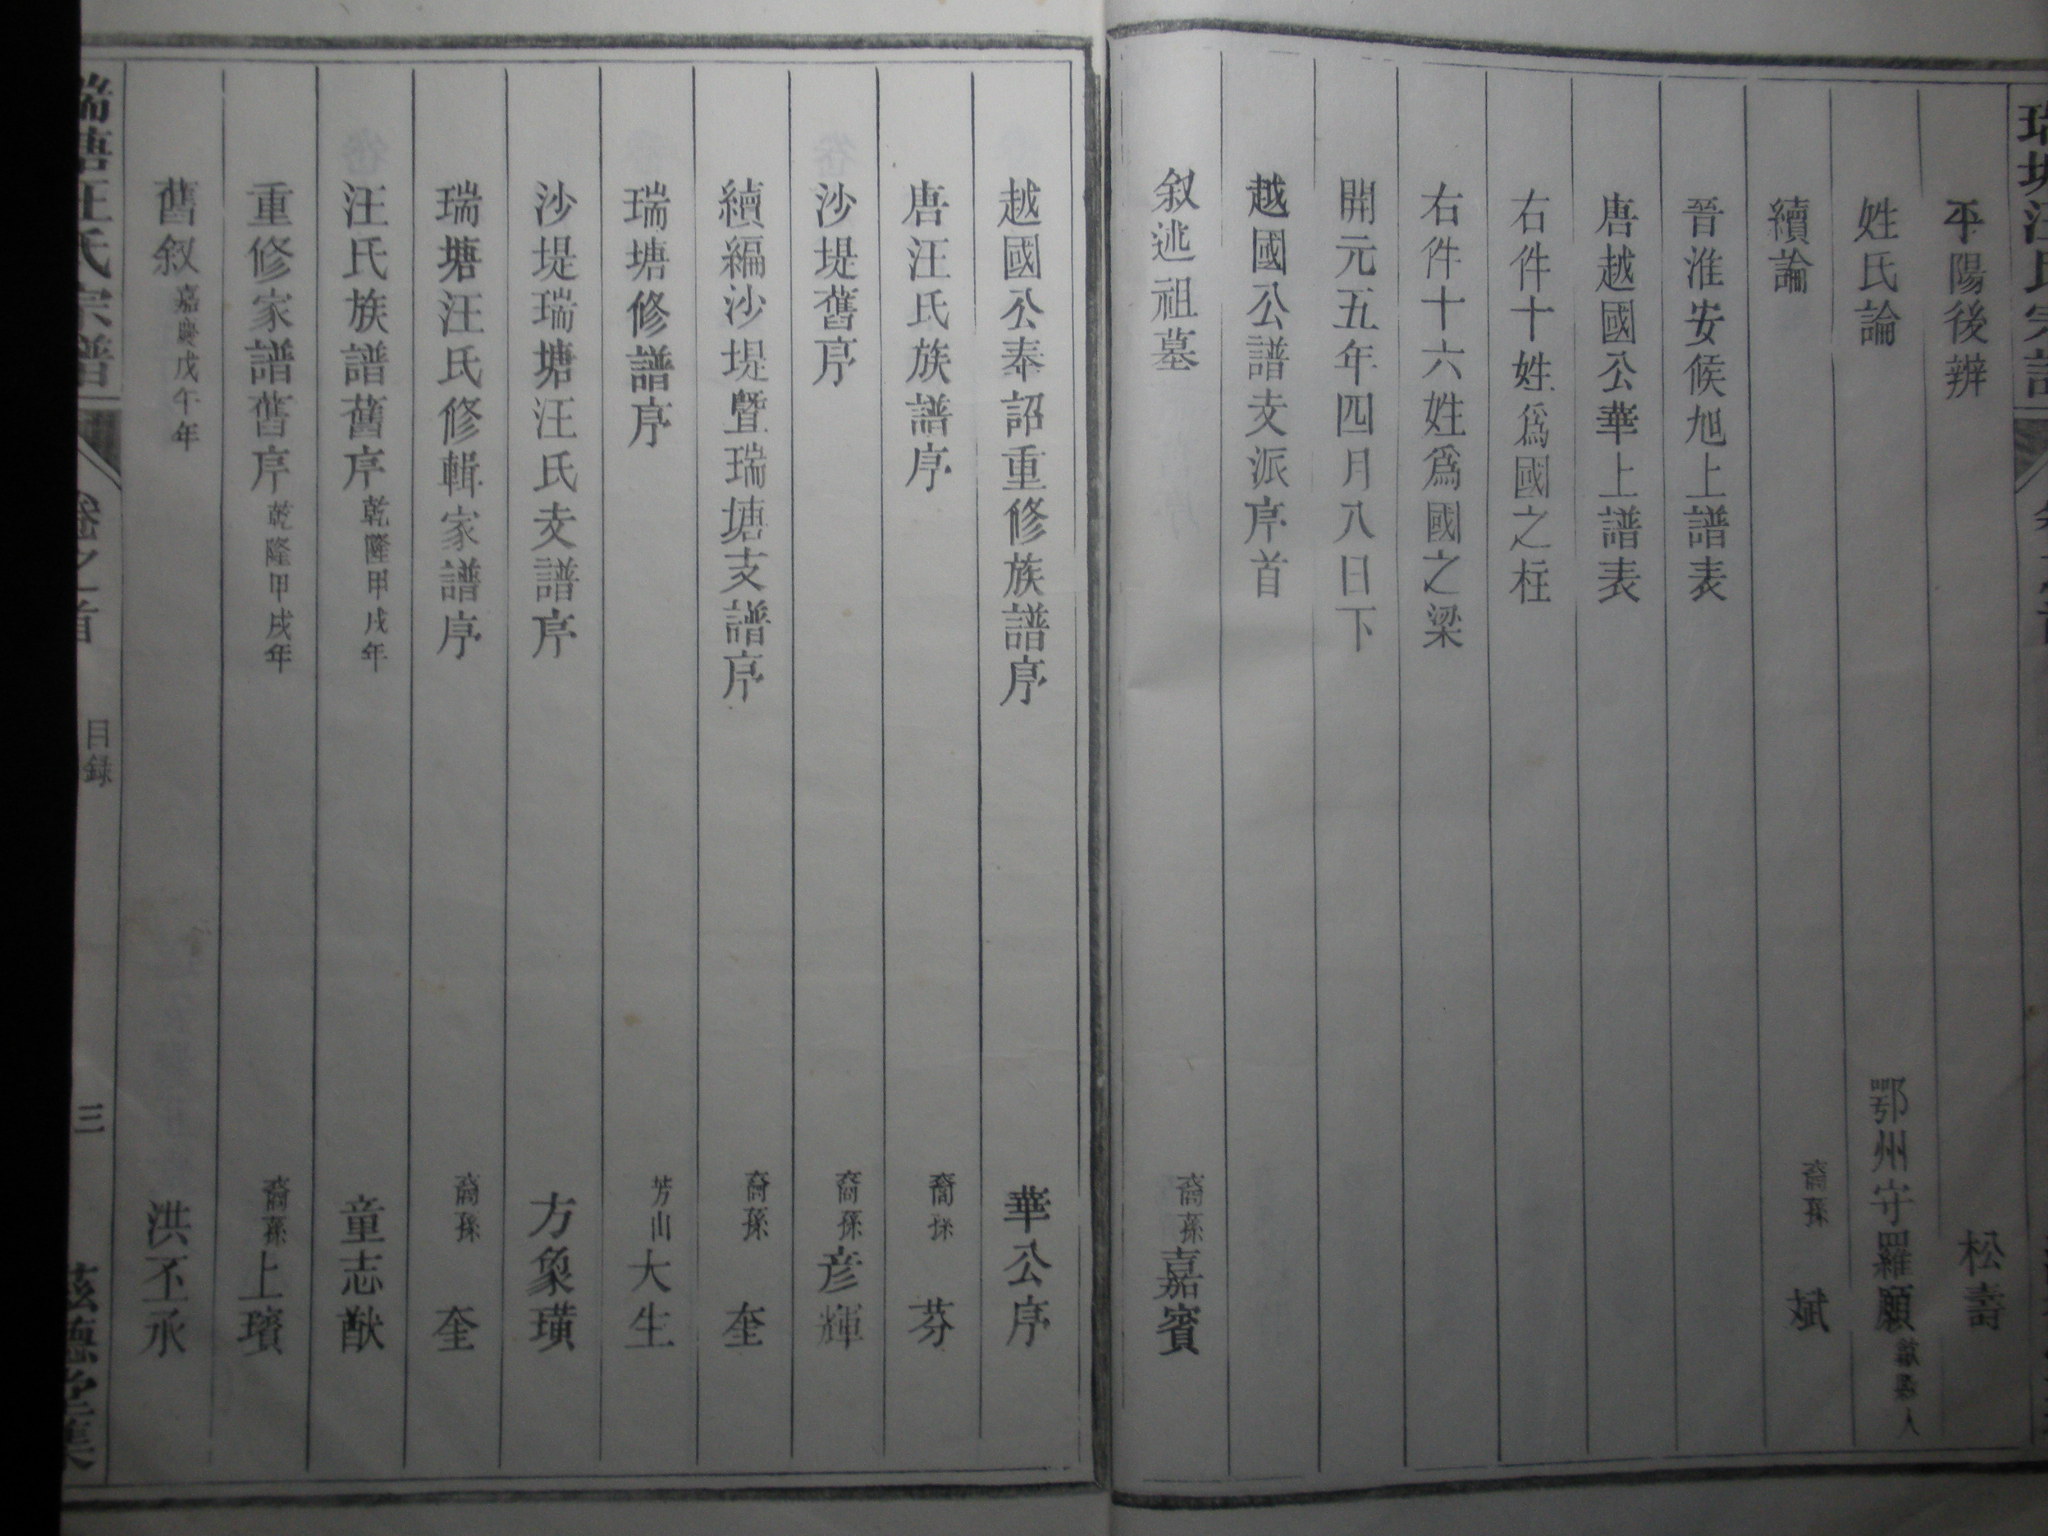 平陽後辨 松壽
姓氏論 鄂州守羅願歙縣人
續論 裔孫 斌
晉淮安侯旭上譜表
唐越國公華上譜表
右件十姓爲國之柱
右件十六姓爲國之梁
開元五年四月八日下
越國公譜支派序首
叙述祖墓 裔孫嘉賓
越國公奉詔重修族譜序 華公序
唐汪氏族譜序 裔孫 芬
沙堤舊序 裔孫彦輝
續編沙堤暨瑞塘支譜序 裔孫 奎
瑞塘修譜序 芳山大生
沙堤瑞塘汪氏支譜序 方象璜
瑞塘汪氏修輯家譜序 裔孫 奎
汪氏族譜舊序乾隆甲戌年 童志猷
重修家譜舊序乾隆甲戌年 裔孫上璸
舊叙嘉慶戊午年 洪丕承
瑞塘汪氏宗譜 卷之首 目録 三